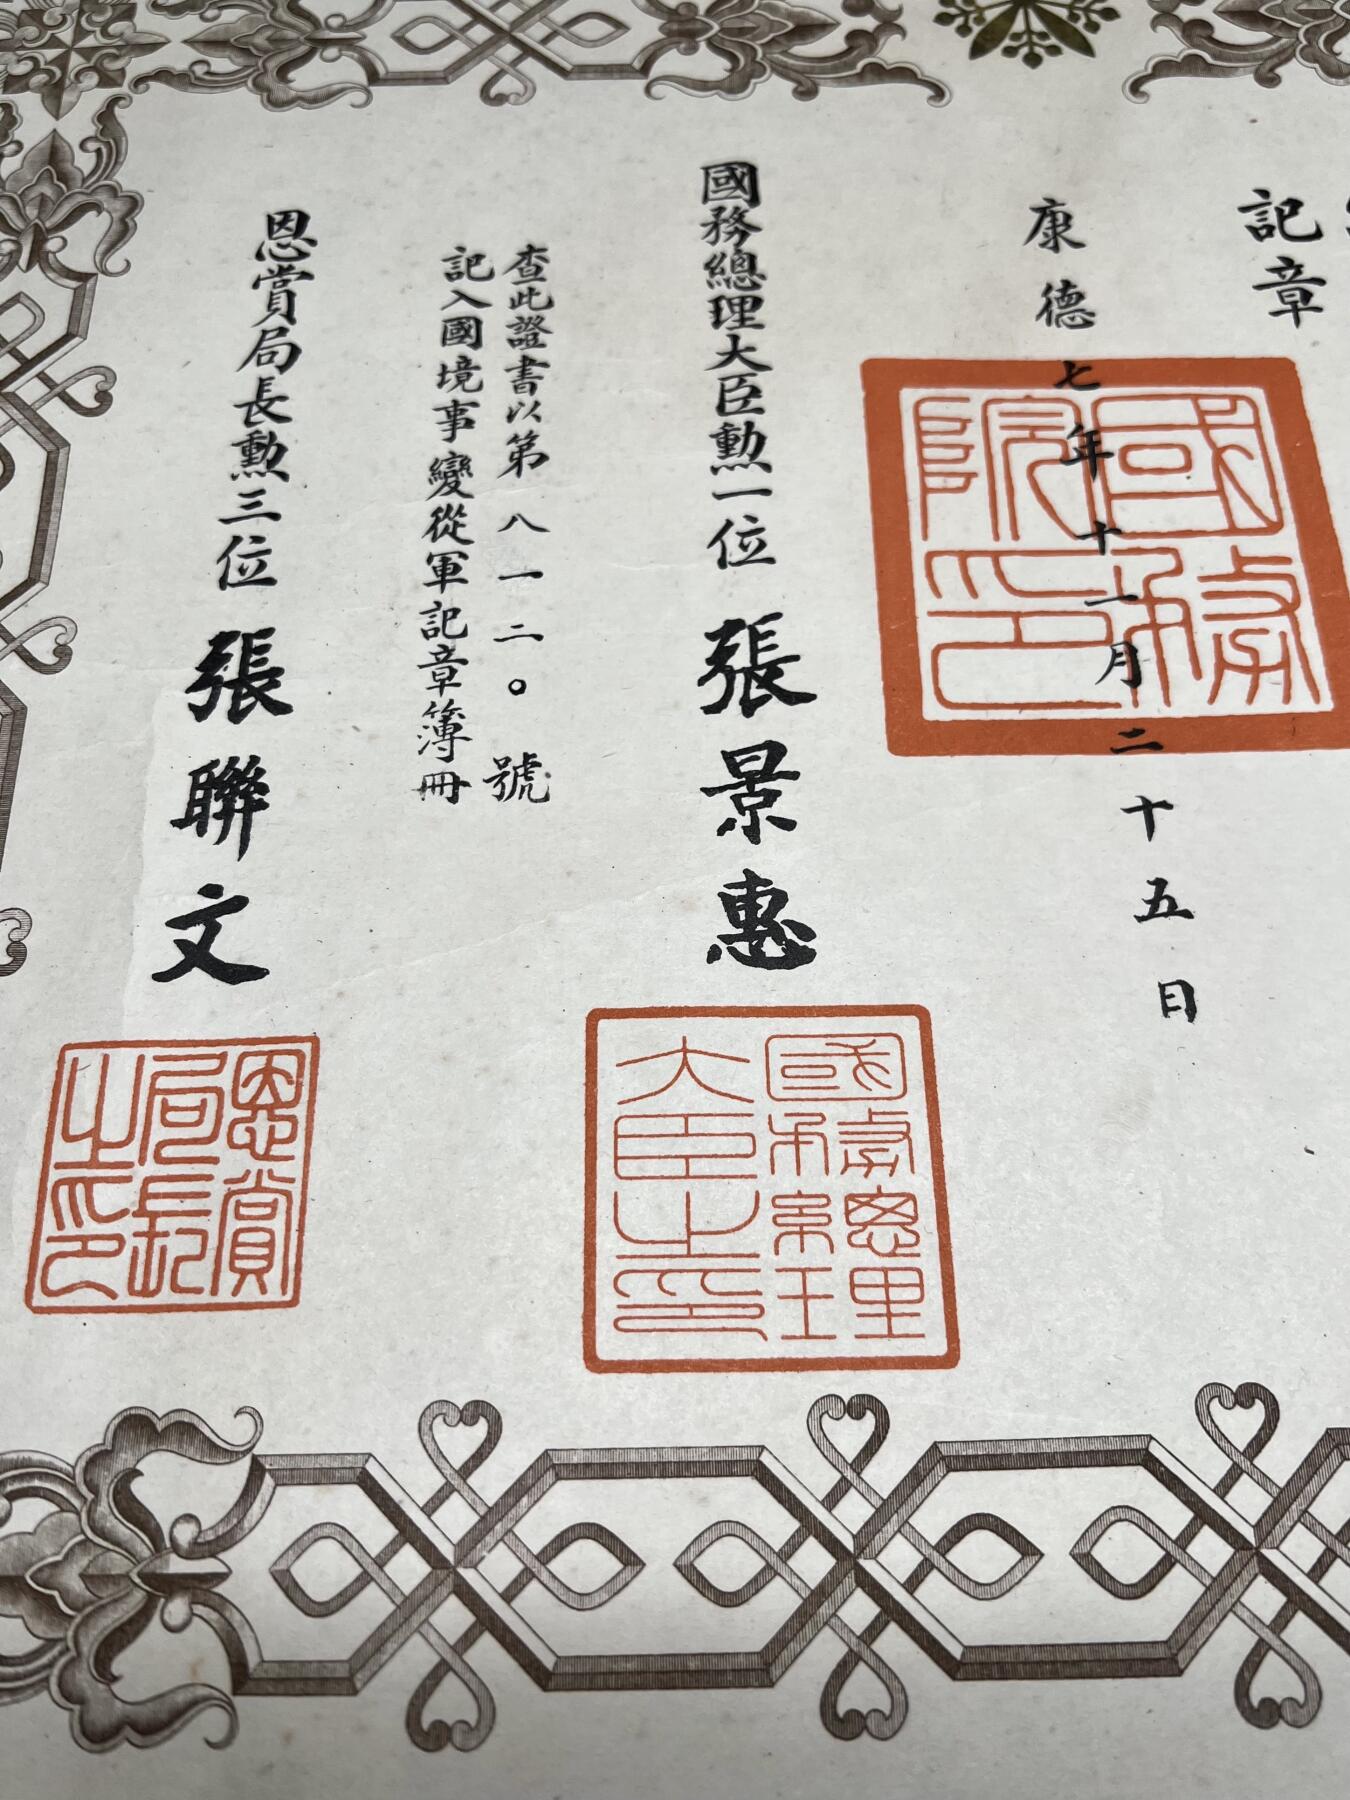 記章
康德七年十一月二十五日
國務院印
國務總理大臣勲一位 張景惠
國務總理大臣之印
查此證書以第八一二〇號
記入國境事變從軍記章簿冊
恩賞局長勲三位 張聯文
恩賞局長之印